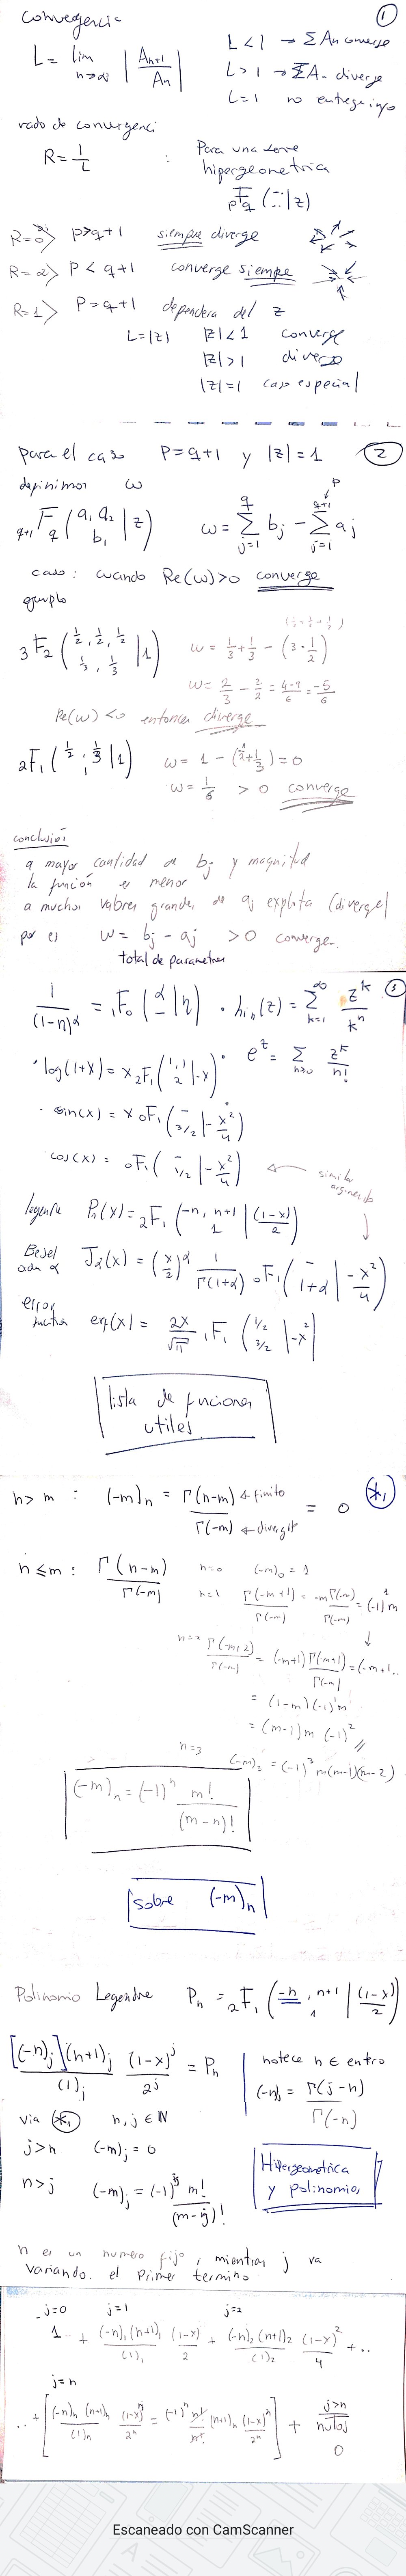 Convergencia ①
L = lim n→∞ | An+1 / An |
L < 1 → ΣAn converge
L > 1 → ΣAn diverge
L = 1 no entrega info
radio de convergenci
R = 1/L : Para una serie
hipergeometrica
pFq (∴|z)
R=0> p>q+1 siempre diverge
R=∞> P < q+1 converge siempre
R=1> P = q+1 dependera del z
L=|z| |z|<1 converge
|z|>1 diverge
|z|=1 caso especial
para el caso P = q+1 y |z| = 1 ②
definimos ω
q+1Fq (a1 a2 b1 | z) ω = Σ_{j=1}^{q} bj − Σ_{j=1}^{q+1} aj
caso: cuando Re(ω)>0 converge
ejemplo
3F2 (1/2, 1/2, 1/2 1/3, 1/3 | 1) ω = 1/3 + 1/3 − (3·1/2)
ω = 2/3 − 3/2 = 4−9/6 = −5/6
Re(ω) <0 entonces diverge
2F1 (1/2, 1/3 1 | 1) ω = 1 − (1/2+1/3) = 0
ω = 1/6 > 0 converge
conclusión
a mayor cantidad de bj y magnitud
la función es menor
a muchos valores grandes de aj explota (diverge)
por es ω = bj − aj > 0 converge.
total de parametros
③
1/(1−n)^α = 1F0 (α − | n) · Lin(z) = Σ_{k=1}^{∞} z^k / k^n
· log(1+x) = x 2F1 (1,1 2 | −x) · e^z = Σ_{n≥0} z^k / n!
· sin(x) = x 0F1 (− 3/2 | −x²/4)
cos(x) = 0F1 (− 1/2 | −x²/4) ← similar
legendre Pn(x) = 2F1 (−n, n+1 1 | (1−x)/2)
Besel
Jα(x) = (x/2)^α 1/Γ(1+α) 0F1 (− 1+α | −x²/4)
error
function erf(x) = 2x/√π 1F1 (1/2 3/2 | −x²)
lista de funciones
utiles
n > m : (−m)n = Γ(n−m) ← finito / Γ(−m) ← diverge = 0 (*1)
n ≤ m : Γ(n−m) / Γ(−m) n=0 (−m)0 = 1
n=1 Γ(−m+1)/Γ(−m) = −mΓ(−m)/Γ(−m) = (−1)^1 m
n=2 Γ(−m+2)/Γ(−m) = (−m+1) Γ(−m+1)/Γ(−m) = (−m+1..
= (1−m)(−1)^1 m
= (m−1)m (−1)²
n=3
(−m)3 = (−1)³ m(m−1)(m−2)
(−m)n = (−1)^n m! / (m−n)!
sobre (−m)n
Polinomio Legendre Pn = 2F1 (−n, n+1 1 | (1−x)/2)
[(−n)j](n+1)j / (1)j (1−x)^j / 2^j = Pn
notece n ∈ entero
(−n)j = Γ(j−n) / Γ(−n)
via (*1) n, j ∈ ℕ
j>n (−m)j = 0
n>j (−m)j = (−1)^j m! / (m−j)!
Hipergeometrica
y polinomios
n es un numero fijo, mientras j va
variando. el primer termino
j=0 j=1 j=2
1 + (−n)1 (n+1)1 / (1)1 (1−x)/2 + (−n)2 (n+1)2 / (1)2 (1−x)²/4 + ..
j=n j>n
.. + [(−n)n (n+1)n / (1)n (1−x)^n / 2^n = (−1)^n n!/n! (n+1)n (1−x)^n / 2^n] + nulos
0
Escaneado con CamScanner